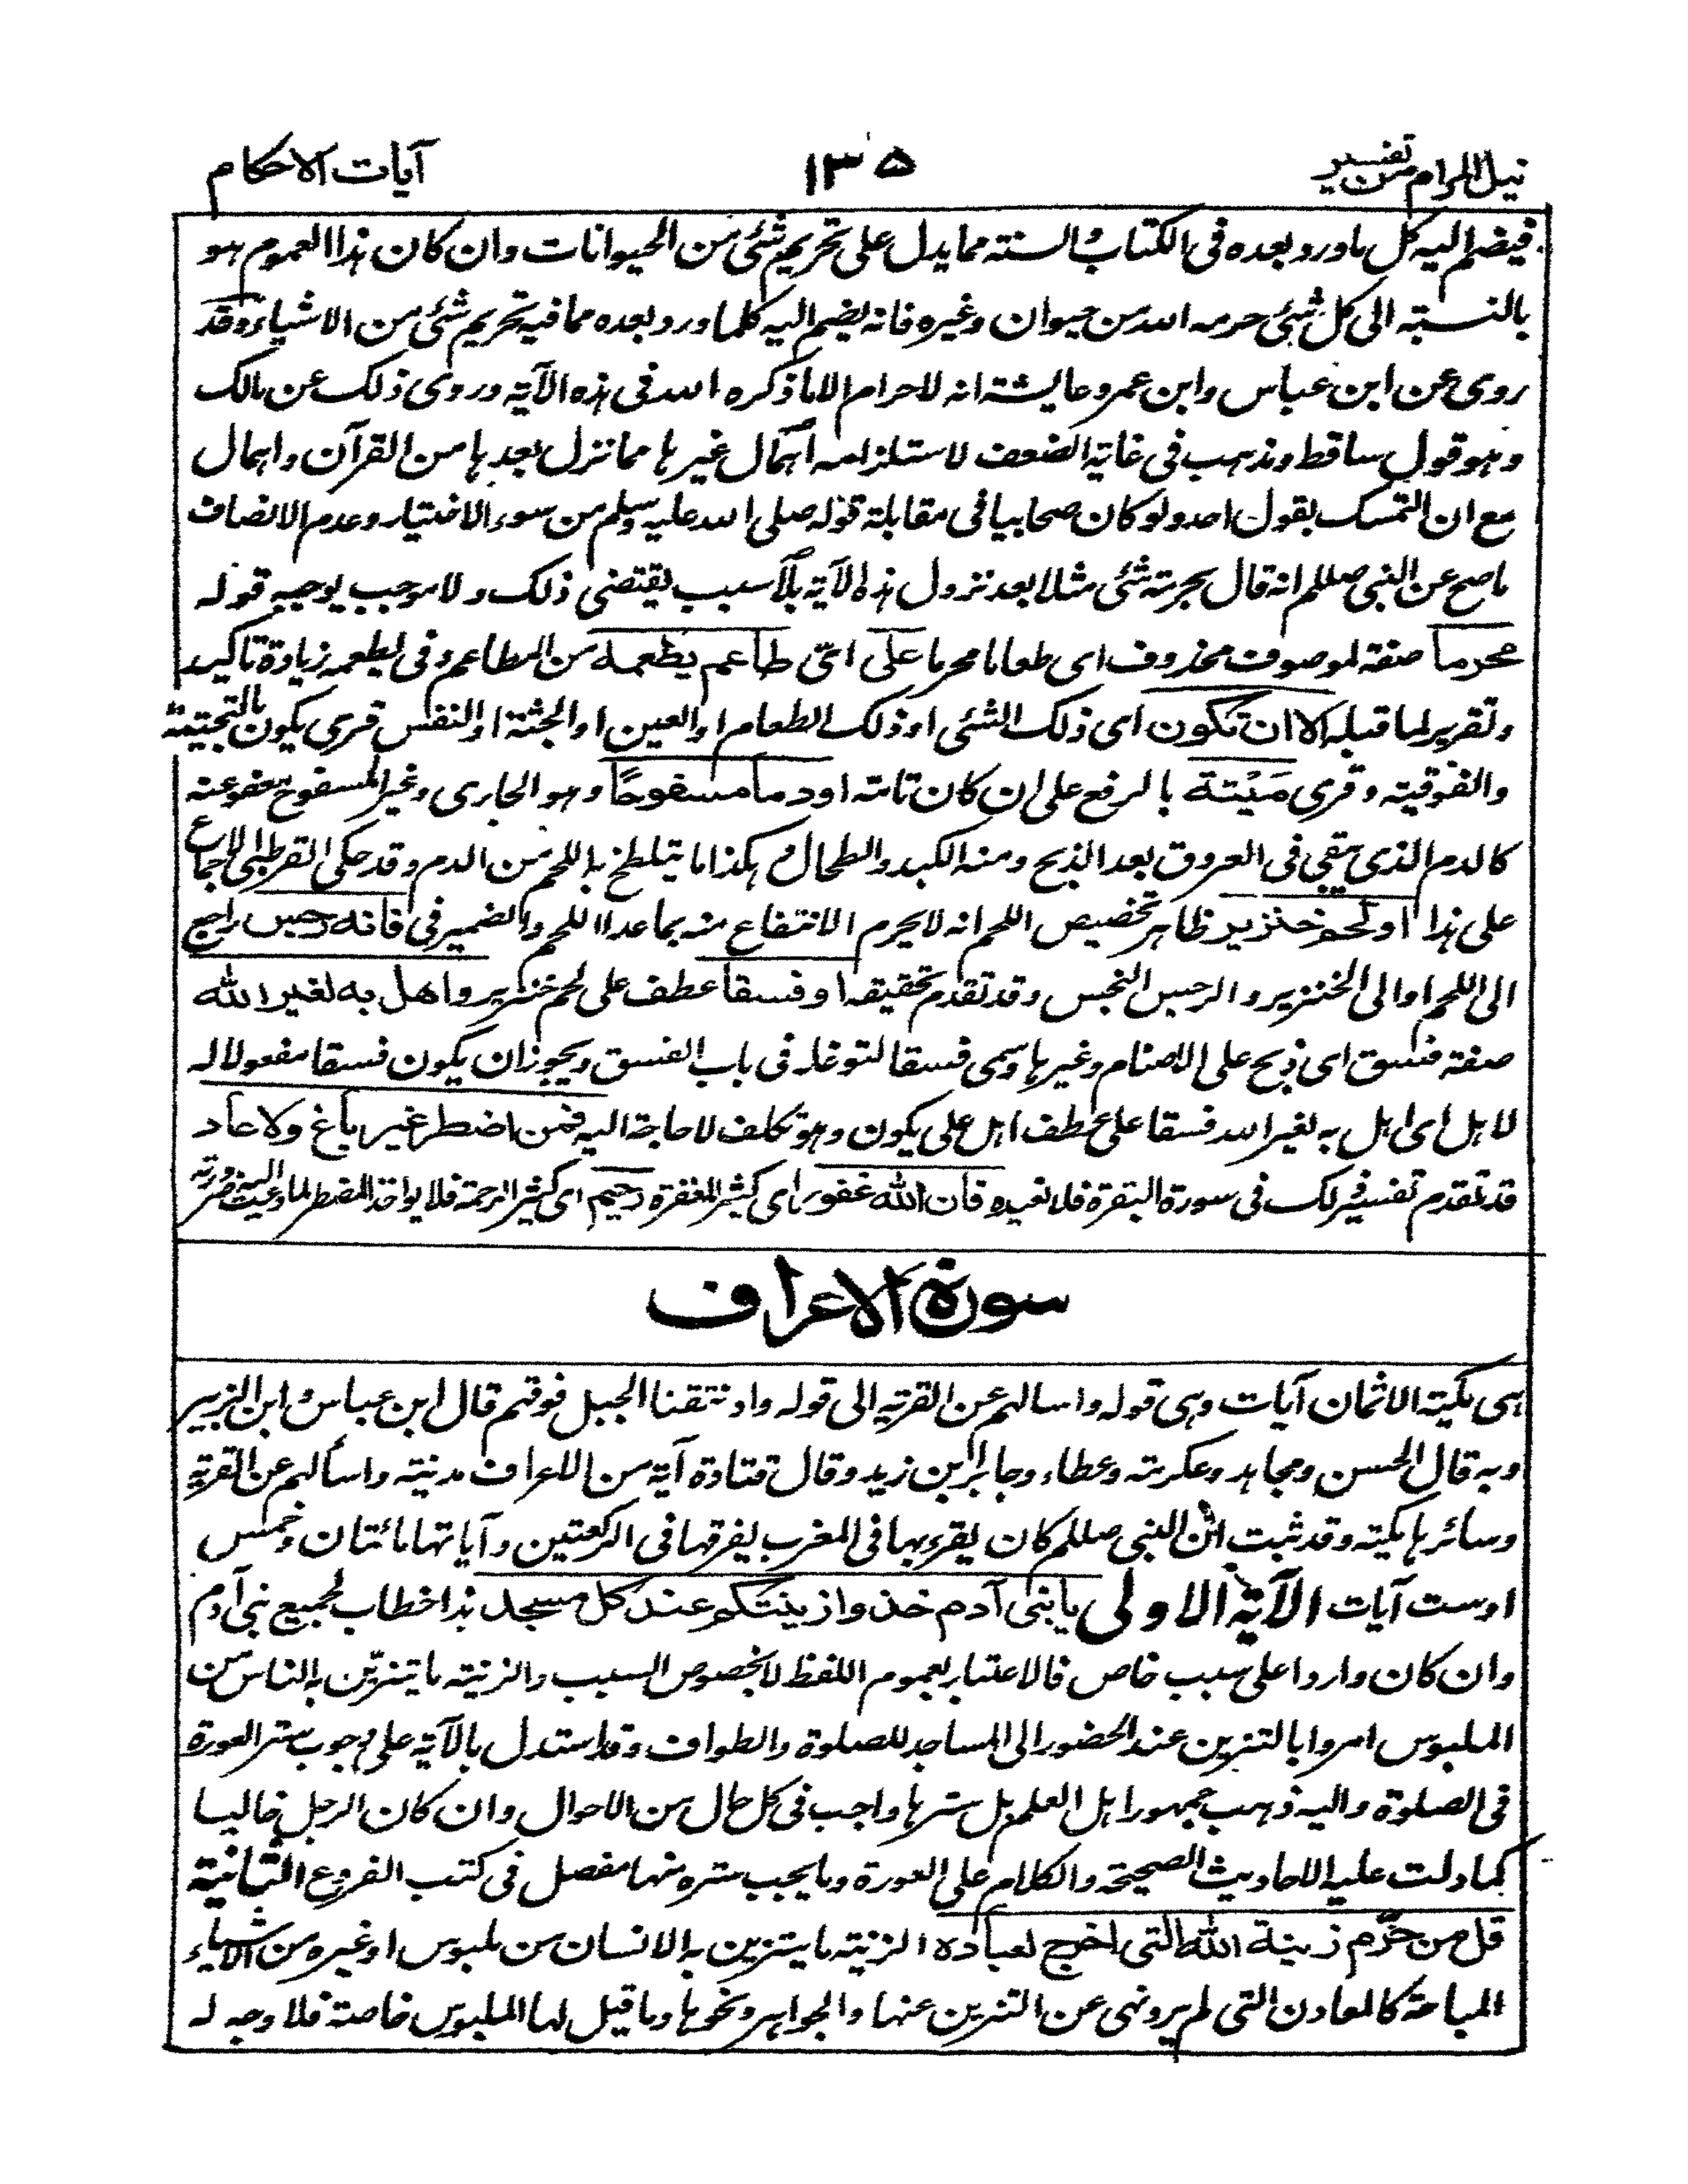 نيل المرام من تفسير ١٣٥ آيات الاحكام
فيضم اليه كل ما ورد بعده فى الكتاب والسنته مما يدل على تحريم شئ من الحيوانات وان كان هذا العموم هو
بالنسبته الى كل شئ حرمه الله من حيوان وغيره فانه يضم اليه كلما ورد بعده مما فيه تحريم شئ من الاشياء وقد
روى عن ابن عباس وابن عمر وعايشة انه لا حرام الا ما ذكره الله فى هذه الآية وروى ذلك عن مالك
وهو قول ساقط ومذهب فى غاية الضعف لاستلزامه اهمال غيرها مما نزل بعدها من القرآن واهمال
مع ان التمسك بقول احد ولو كان صحابيا فى مقابلة قوله صلى الله عليه وسلم من سوء الاختيار وعدم الانصاف
ما صح عن النبى صللم انه قال بحرمة شئ مثلا بعد نزول هذه الآية بلا سبب يقتضى ذلك ولا موجب يوجبه قوله
محرما صفة لموصوف محذوف اى طعاما محرما على اىّ طاعم يطعمه من المطاعم وفى يطعمه زيادة تاكيد
وتقرير لما قبله الا ان تكون اى ذلك الشئى او ذلك الطعام او العين او الجثة او النفس قرى يكون بالتحتية
والفوقيته وقرى مَيْتة بالرفع على ان كان تامة او دما مسفوحًا وهو الجارى وغير المسفوح معفو عنه
كالدم الذى يبقى فى العروق بعد الذبح ومنه الكبد والطحال وهكذا ما يتلطخ به اللحم من الدم وقد حكى القرطبى الاجماع
على هذا او لحم خنزير ظاهر تخصيص اللحم انه لا يحرم الانتفاع منه بما عدا اللحم والضمير فى فانه رجس راجع
الى اللحم او الى الخنزير والرجس النجس وقد تقدم تحقيقه او فسقا عطف على لحم خنزير واهل به لغير الله
صفة فسق اى ذبح على الاصنام وغيرها وسمى فسقا لتوغله فى باب الفسق ويجوز ان يكون فسقا مفعولا له
لاهل اى اهل به لغير الله فسقا على عطف اهل على يكون وهو تكلف لا حاجة اليه فمن اضطر غير باغ ولا عاد
قد تقدم تفسير ذلك فى سورة البقرة فلا نعيده فان الله غفور اى كثير المغفرة رحيم اى كثير الرحمة فلا يواخذ المضطر لما دعت اليه ضرورته
سورة الاعراف
هى مكية الا ثمان آيات وهى قوله واسالهم عن القرية الى قوله واذ نتقنا الجبل فوقهم قال ابن عباس وابن الزبير
وبه قال الحسن ومجاهد وعكرمته وعطاء وجابر ابن زيد وقال قتادة آية من الاعراف مدنيته واسألهم عن القرية
وسائرها مكية وقد ثبت ان النبى صللم كان يقرء بها فى المغرب يفرقها فى الركعتين وآياتها مائتان وخمس
اوست آيات الآية الاولى يا بنى آدم خذوا زينتكم عند كل مسجد هذا خطاب لجميع بنى آدم
وان كان واردا على سبب خاص فالاعتبار بعموم اللفظ لا بخصوص السبب والزينته ما يتزيّن به الناس من
الملبوس امروا بالتزين عند الحضور الى المساجد للصلوة والطواف وقد استدل بالآية على وجوب ستر العورة
فى الصلوة واليه ذهب جمهور اهل العلم بل سترها واجب فى كل حال من الاحوال وان كان الرجل خاليا
كما دلت عليه الاحاديث الصحيحة والكلام على العورة وما يجب ستره منها مفصل فى كتب الفروع الثانية
قل من حرّم زينة الله التى اخرج لعباده الزينته ما يتزين به الانسان من ملبوس او غيره من الاشياء
المباحة كالمعادن التى لم يرد نهى عن التزين عنها والجواهر ونحوها وما قيل لها الملبوس خاصة فلا وجه له